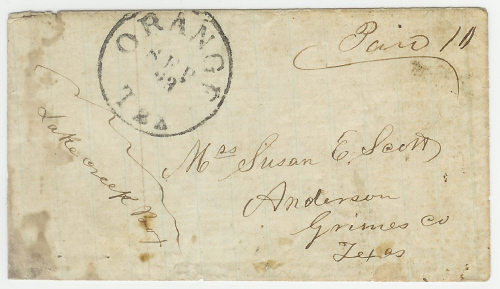 ORANGE
SEP
TEX
Paid 10
Lake creek P.O.
Mrs Susan E. Scott
Anderson
Grimes Co
Texas